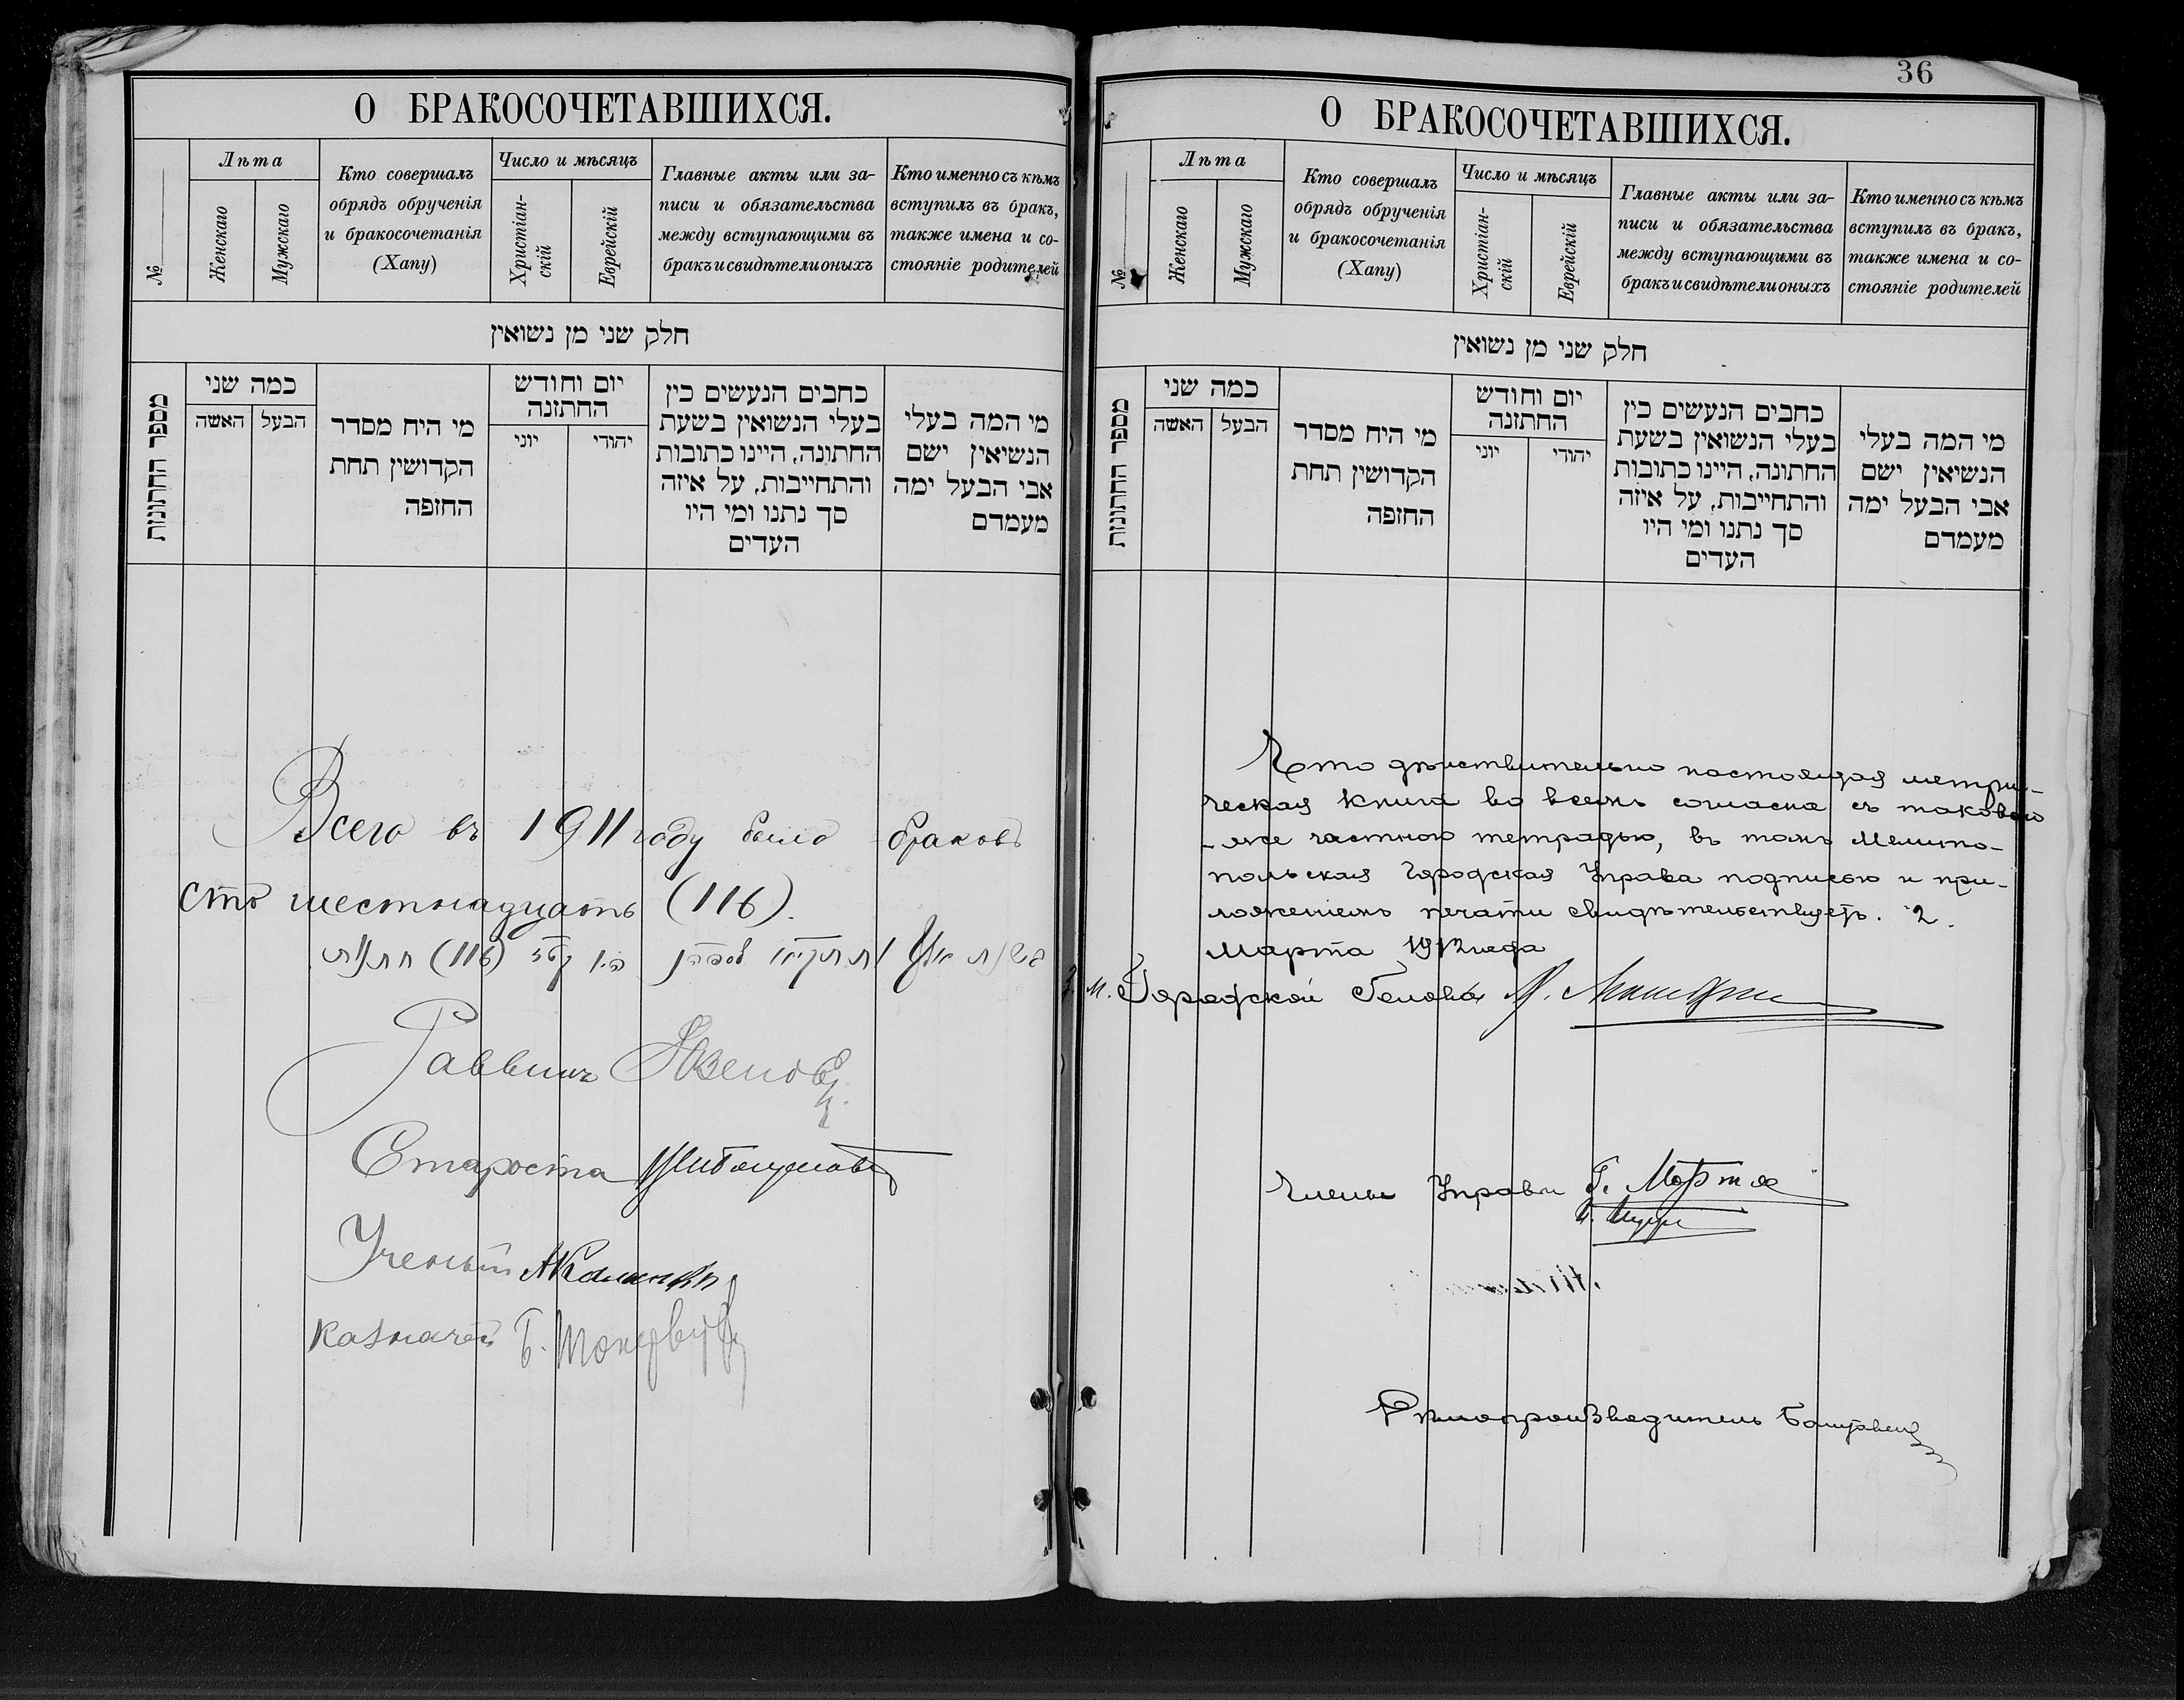 О БРАКОСОЧЕТАВШИХСЯ.
№
Лѣта
Женскаго
Мужскаго
Кто совершалъ
обрядъ обрученія
и бракосочетанія
(Хапу)
Число и мѣсяцъ
Христіан-
скій
Еврейскій
Главные акты или за-
писи и обязательства
между вступающими въ
бракъ и свидѣтели оныхъ
Кто именно съ кѣмъ
вступилъ въ бракъ,
также имена и со-
стояніе родителей
חלק שני מן נשואין
מספר החתונות
כמה שני
האשה
הבעל
מי היח מסדר
הקדושין תחת
החזפה
יום וחודש
החתזנה
יוני
יהודי
כחבים הנעשים כין
בעלי הנשואין בשעת
החתונה, היינו כתובות
והתחייבות, על איזה
סך נתנו ומי היו
העדים
מי המה בעלי
הנשיאין ישם
אבי הבעל ימה
מעמדם
Всего въ 1911 году было браковъ
сто шестнадцать (116).
(116)
Раввинъ
Староста
Ученый
Казначей Б.
36
О БРАКОСОЧЕТАВШИХСЯ.
№
Лѣта
Женскаго
Мужскаго
Кто совершалъ
обрядъ обрученія
и бракосочетанія
(Хапу)
Число и мѣсяцъ
Христіан-
скій
Еврейскій
Главные акты или за-
писи и обязательства
между вступающими въ
бракъ и свидѣтели оныхъ
Кто именно съ кѣмъ
вступилъ въ бракъ,
также имена и со-
стояніе родителей
חלק שני מן נשואין
מספר החתונות
כמה שני
האשה
הבעל
מי היח מסדר
הקדושין תחת
החזפה
יום וחודש
החתזנה
יוני
יהודי
כחבים הנעשים כין
בעלי הנשואין בשעת
החתונה, היינו כתובות
והתחייבות, על איזה
סך נתנו ומי היו
העדים
מי המה בעלי
הנשיאין ישם
אבי הבעל ימה
מעמדם
Что дѣйствительно настоящая метри-
ческая книга во всемъ согласна съ таковою
-же частною тетрадью, въ томъ Мелито-
польская Городская Управа подписью и при-
ложеніемъ печати свидѣтельствуетъ. 2
Марта 1912 года
З. М. Городской Головы
Члены Управы Г.
Дѣлопроизводитель